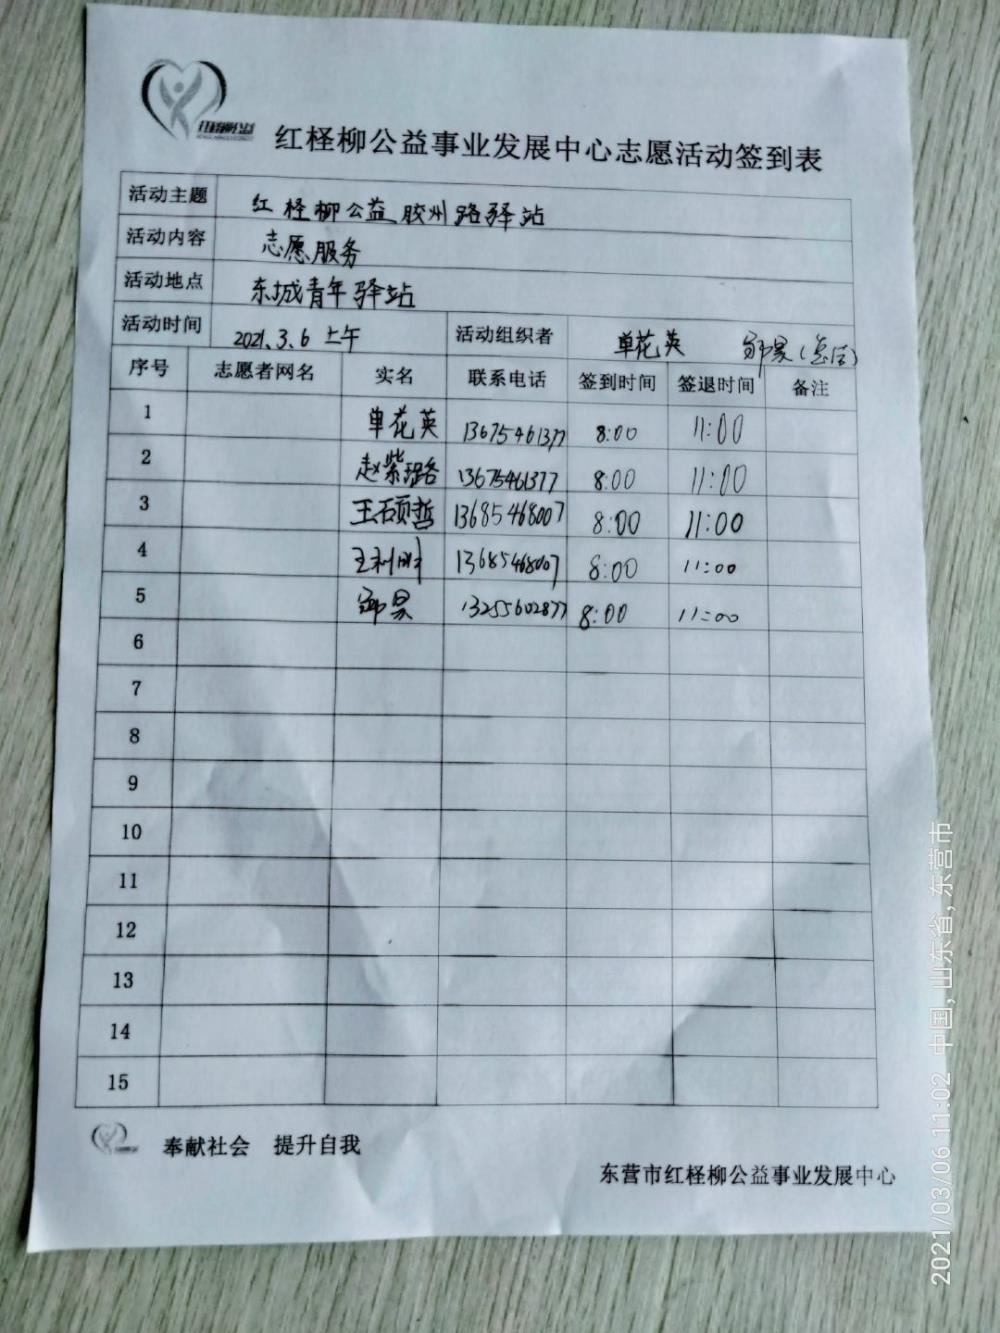 红柽柳公益
红柽柳公益事业发展中心志愿活动签到表
活动主题 红柽柳公益胶州路驿站
活动内容 志愿服务
活动地点 东城青年驿站
活动时间 2021.3.6 上午 活动组织者 单花英 邹昊
序号 志愿者网名 实名 联系电话 签到时间 签退时间 备注
1 单花英 13675461377 8:00 11:00
2 赵紫璐 13675461377 8:00 11:00
3 王硕哲 13685468007 8:00 11:00
4 王利明 13685468007 8:00 11:00
5 邹昊 13255602877 8:00 11:00
6
7
8
9
10
11
12
13
14
15
奉献社会 提升自我
东营市红柽柳公益事业发展中心
2021/03/06 11:02 中国, 山东省, 东营市